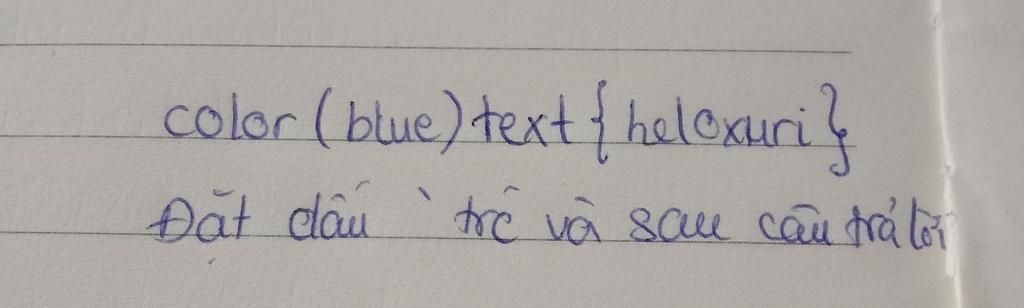 color(blue)text{heloxuri}
Đặt dấu ` trc và sau câu trả lời